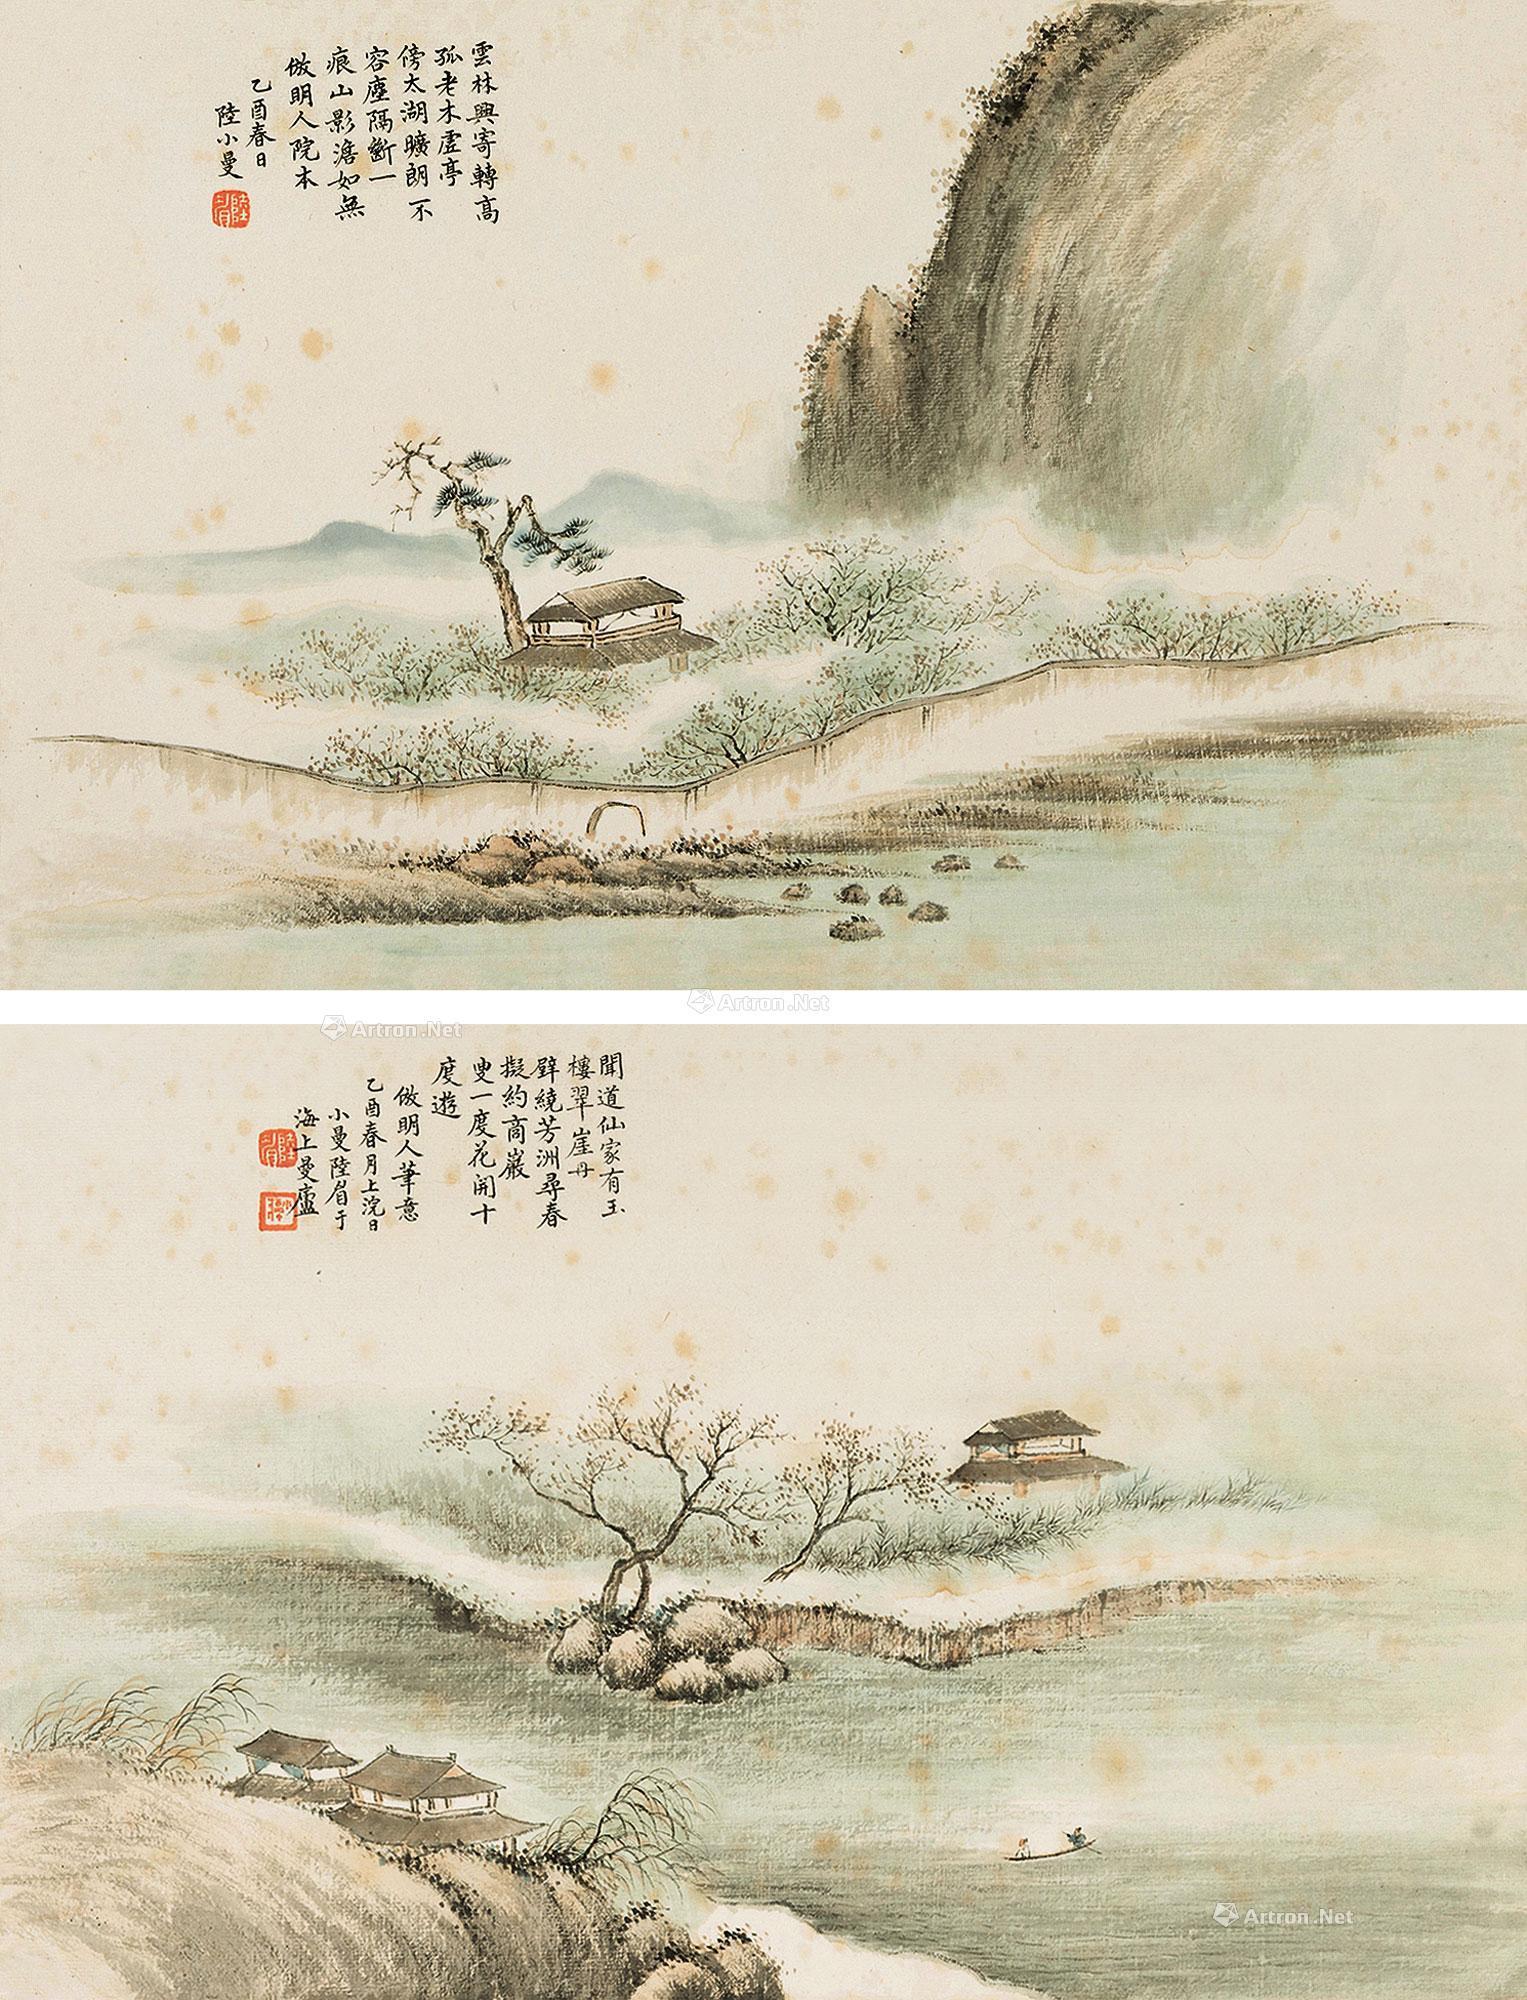 雲林興寄轉高
孤老木虛亭
傍太湖曠朗不
容塵隔斷一
痕山影澹如無
倣明人院本
乙酉春日
陸小曼
Artron.Net
Artron.Net
聞道仙家有玉
樓翠崖丹
壁繞芳洲尋春
擬約商巖
叟一度花開十
度遊
倣明人筆意
乙酉春月上浣日
小曼陸眉于
海上曼廬
Artron.Net